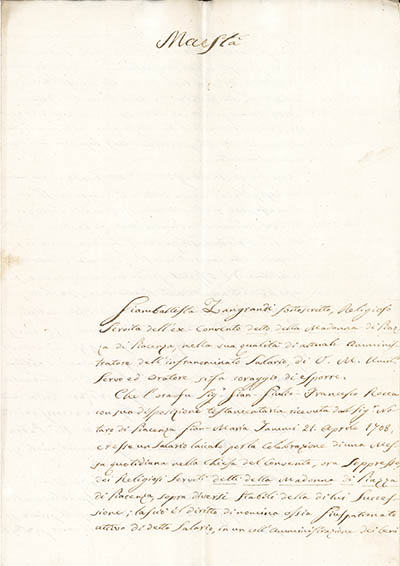 Maestà
Giambattista Zangrandi sottoscritto, Religioso
Servita dell'ex-Convento detto della Madonna di Piaz-
za di Piacenza nella sua qualità di attuale Ammini-
stratore dell'infranominato Salario, di V. M. Umil.
Servo ed Oratore si fa coraggio di esporre.
Che l'ora fu Sig. Gian Giulio Francesco Rocca
con sua disposizione testamentaria ricevuta dal Sig. No-
taro di Piacenza Gian Maria 21. Aprile 1708,
eresse un Salario laicale per la Celebrazione di una Mes-
sa quotidiana nella Chiesa del Convento, ora Soppresso
dei Religiosi Serviti detti della Madonna di Piazza
di Piacenza, sopra diversi Stabili della di lui Succes-
sione; lasciò il diritto di nomina ossia Giuspatronato
attivo di detto Salario, in un coll'Amministrazione dei beni